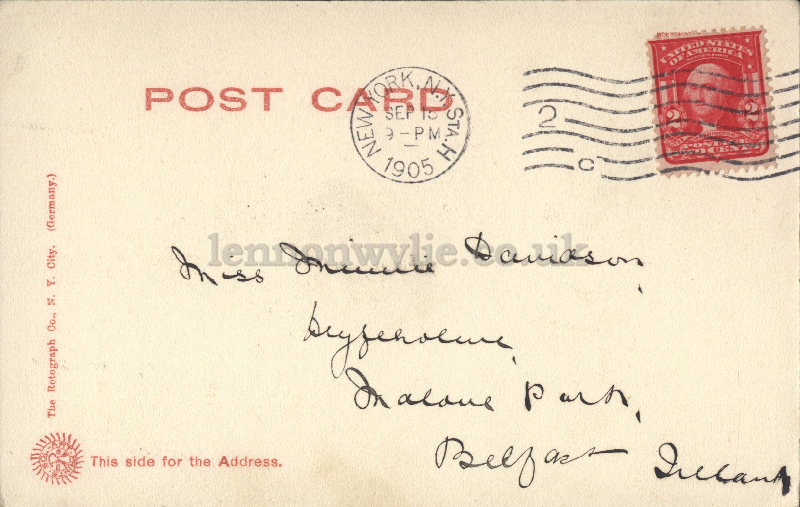 POST CARD
NEW YORK, N.Y. STA. H
SEP 15
9 - PM
1905
2
C
UNITED STATES
OF AMERICA
2 2
lennonwylie.co.uk
Miss Minnie Davidson,
Malone Park,
Belfast Ireland
The Rotograph Co., N. Y. City. (Germany.)
This side for the Address.